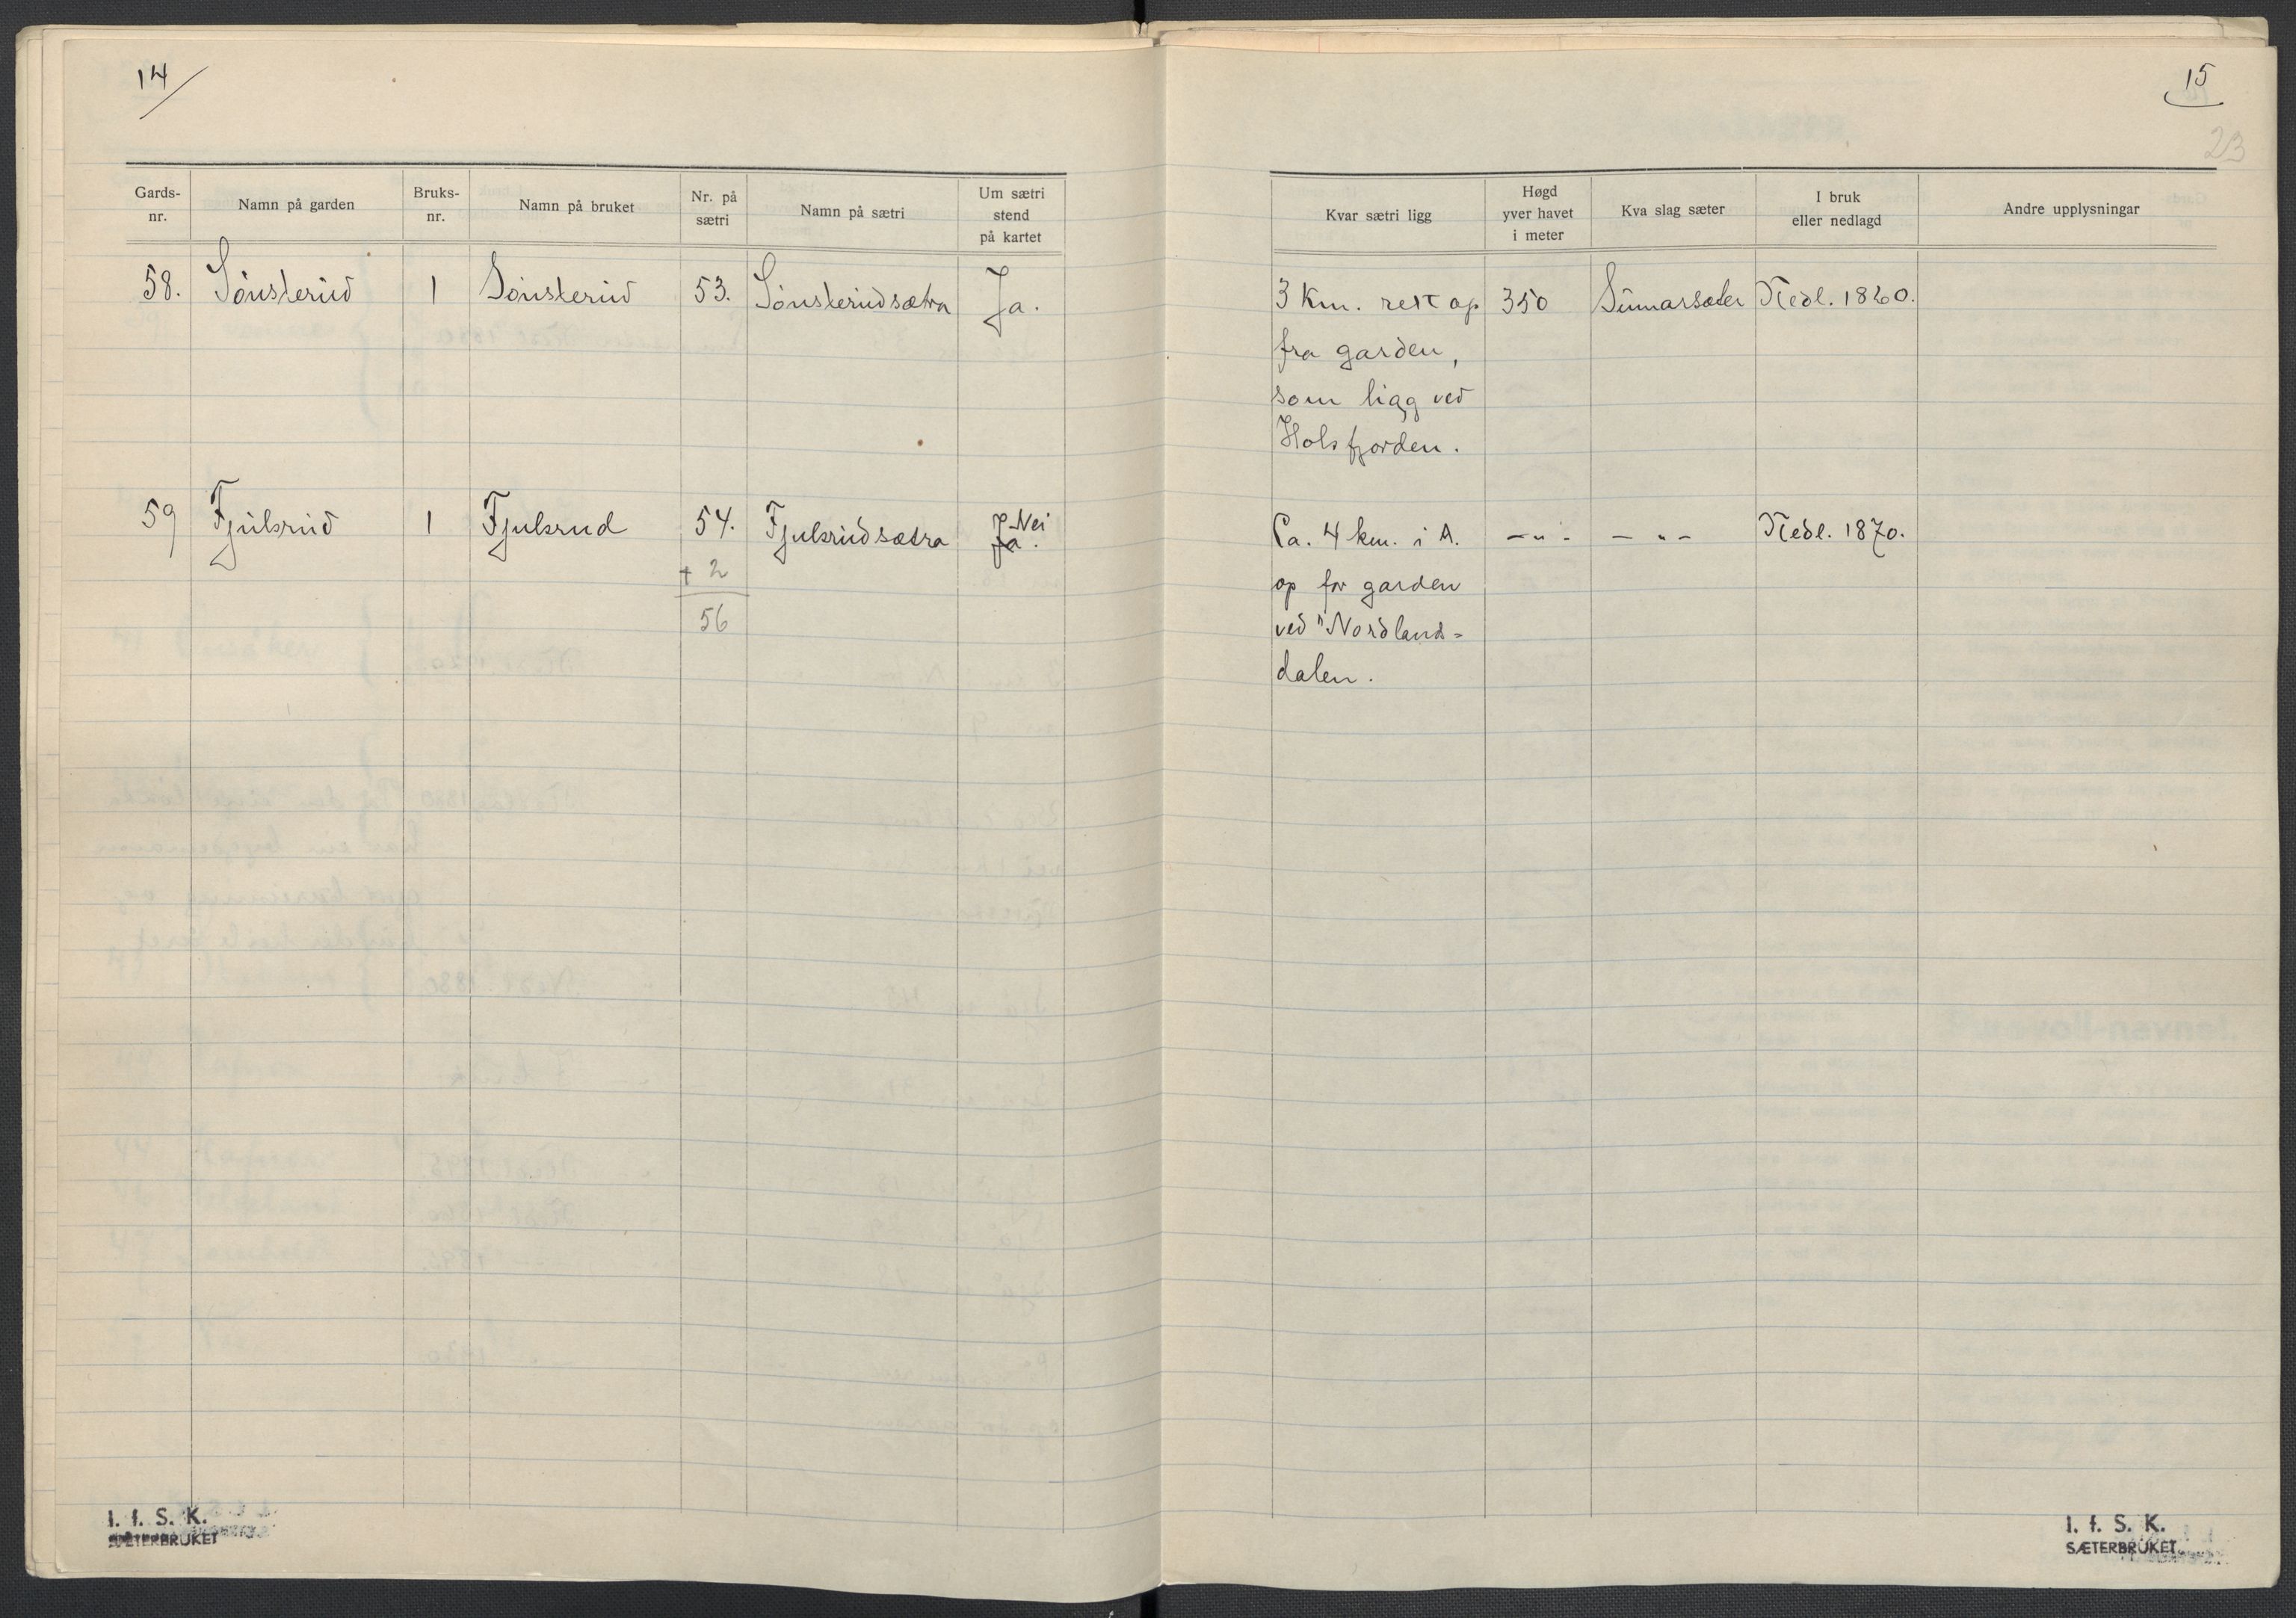 14
Gards-
nr.
Namn på garden
Bruks-
nr.
Namn på bruket
Nr. på
sætri
Namn på sætri
Um sætri
stend
på kartet
58. Sönsterud 1 Sönsterud 53. Sönsterudsætra Ja.
59 Fjulsrud 1 Fjulsrud 54. Fjulsrudsætra Ja. Nei
+ 2
56
I. f. S. K.
SÆTERBRUKET
15
23
Kvar sætri ligg
Høgd
yver havet
i meter
Kva slag sæter
I bruk
eller nedlagd
Andre upplysningar
3 Km. rett op 350 Sumarsæter Nedl. 1860.
fra garden,
som ligg ved
Holsfjorden.
Ca. 4 km. i A. -"- -"- Nedl. 1870.
op for garden
ved "Nordland-
dalen.
I. f. S. K.
SÆTERBRUKET